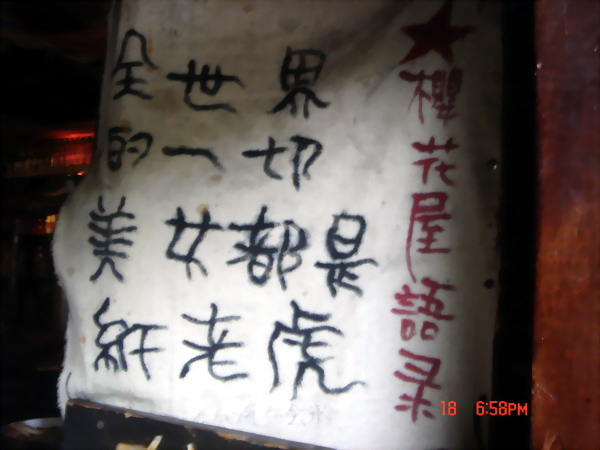 全世界
的一切
美女都是
紙老虎
櫻花屋語录
18 6:58PM